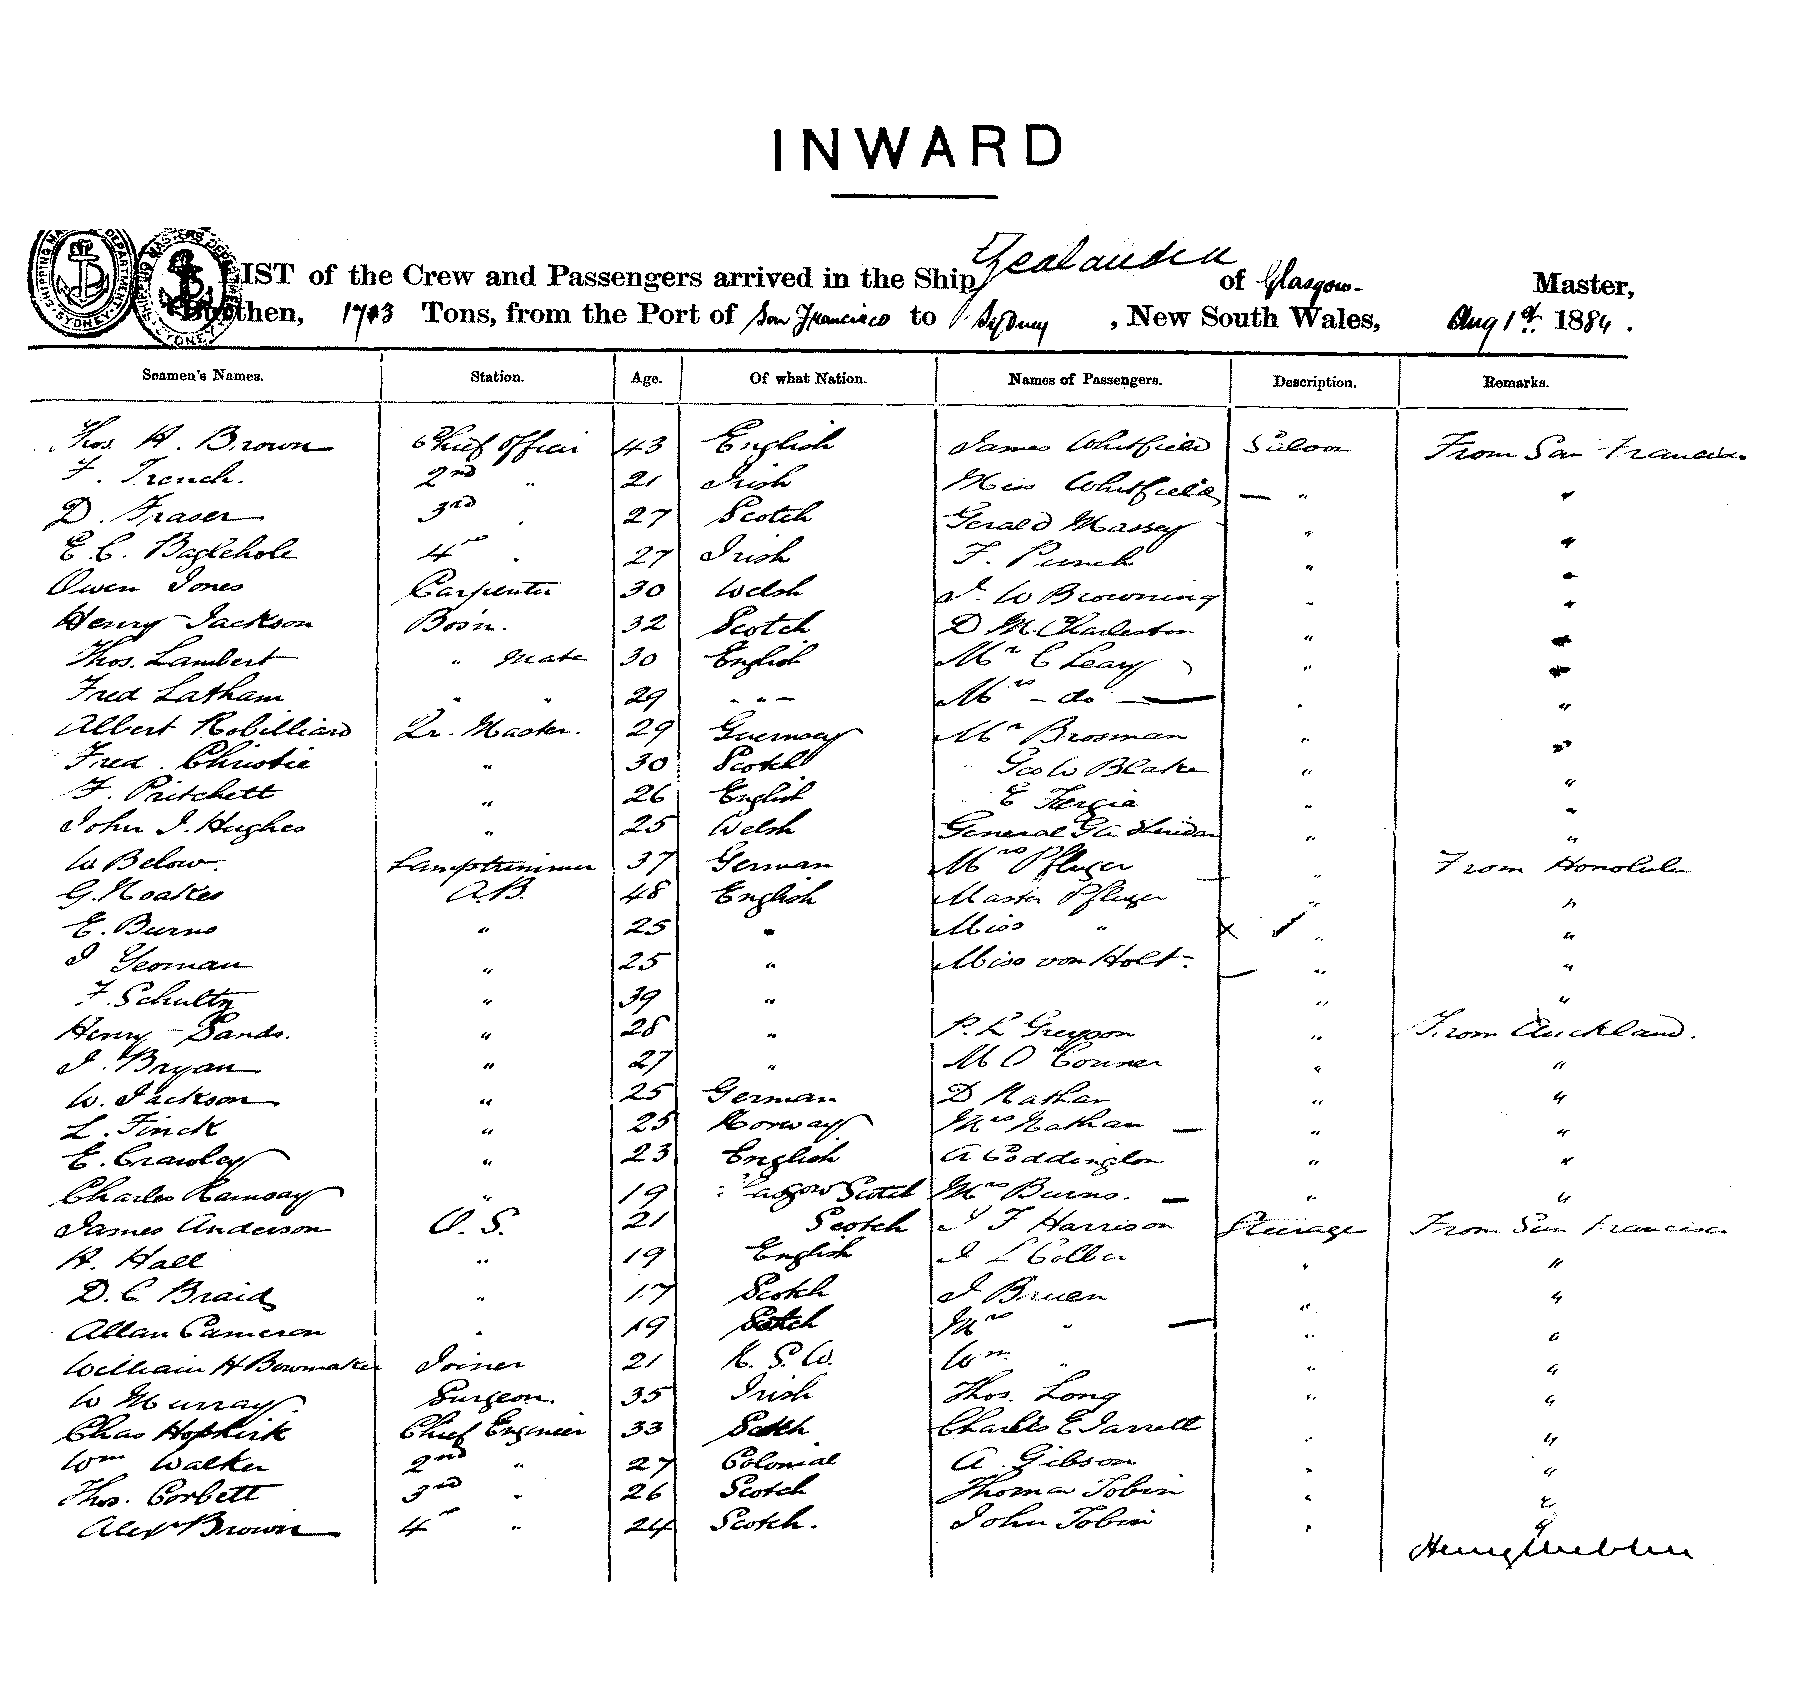 INWARD
SHIPPING MASTERS DEPARTMENT SYDNEY
LIST of the Crew and Passengers arrived in the Ship Zealandia of Glasgow. Master,
Burthen, Tons, from the Port of San Francisco to Sydney, New South Wales, Aug 1st 1884.
Seamen's Names. Station. Age. Of what Nation. Names of Passengers. Description. Remarks.
Thos. H. Brown Chief Officer 43 English James Whitfield Saloon From San Francisco
F. Trench. 2nd " 21 Irish Miss Whitfield — " "
D. Fraser 3rd " 27 Scotch Gerald Massey " "
E. C. Baglehole 4th " 27 Irish F. Punch " "
Owen Jones Carpenter 30 Welsh J. W Browning " "
Henry Jackson Bosn. 32 Scotch D McCharleston " "
Thos. Lambert " Mate 30 English Mr C Leary " "
Fred Latham " " 29 " " — Mrs — do — " "
Albert Robilliard Qr. Master. 29 Guernsey Mr Brosman " "
Fred. Christie " 30 Scotch Geo W Blake " "
F. Pritchett " 26 English E " "
John J. Hughes " 25 Welsh General Sheridan " "
W Below. Lamptrimmer 37 German Mrs Pfluger " From Honolulu
G. Noakes A.B. 48 English Master Pfluger " "
E. Burns " 25 " Miss " " "
J Yeoman " 25 " Miss von Holt — " "
F. Schultz " 39 " " "
Henry Sands. " 28 " P. L Greyson " From Auckland.
J. Bryan " 27 " M O Conner " "
W. Jackson " 25 German D Nathan " "
L. Finck " 25 Norway Mrs Nathan — " "
E. Crawley " 23 English A Coddington " "
Charles Ramsay " 19 Scotch Mrs Burns. — " "
James Anderson O. S. 21 Scotch J F Harrison Steerage From San Francisco
H. Hall " 19 English J L " "
D. C Braid " 17 Scotch J Bruen " "
Allan Cameron " 19 Scotch Mrs " — " "
William H Bowmaker Joiner 21 N. S. W. Wm. " " "
W Murray. Surgeon. 35 Irish Thos. Long " "
Chas Hopkirk Chief Engineer 33 Scotch Charles E Jarrett " "
Wm Walker 2nd " 27 Colonial A. Gibson " "
Thos. Corbett 3rd " 26 Scotch Thomas Tobin " "
Alexr Brown 4th " 24 Scotch. John Tobin " "
Henry